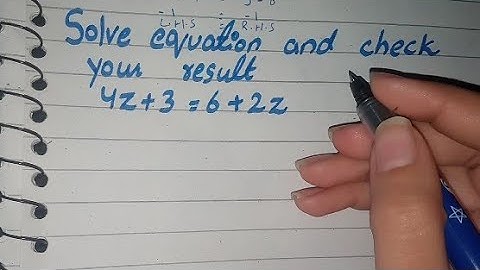 L.H.S = R.H.S
Solve equation and check
your result
4z+3 = 6+2z